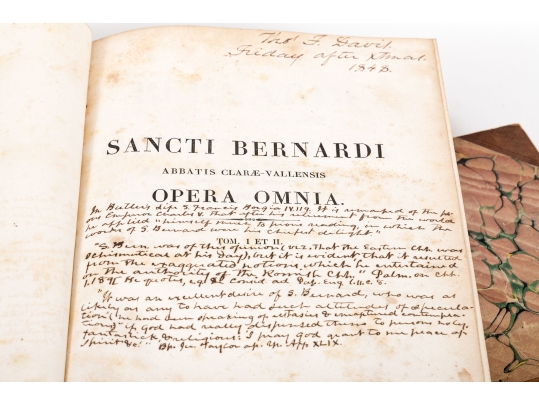 Thos. F. Davis.
Friday after Xmas.
1848.
SANCTI BERNARDI
ABBATIS CLARÆ-VALLENSIS
OPERA OMNIA.
In Butler's life S. Francis Borgia it is remarked of the
Emperor Charles V. that after his retirement from the world
he applied "himself much to pious reading in which the
works of S. Bernard were his chiefest delight"
TOM. I ET II.
"S. Bern. was of this opinion (viz. that the Eastern Chh. was
schismatical at his day), but it is evident that it resulted
from the exaggerated notions which he entertained
on the authority of the Romish Chh." Palm. on Chh.
He quotes,
"It was an excellent desire of S. Bernard, who was as
likely as any to have had such altitudes of specula-
tion (he had been speaking of ecstasies & enraptured contempla-
tions) if God had really dispensed them to persons holy,
& religious: I pray God grant to me peace of
spirit &c." Bp. Jer. Taylor ap. XLIX.